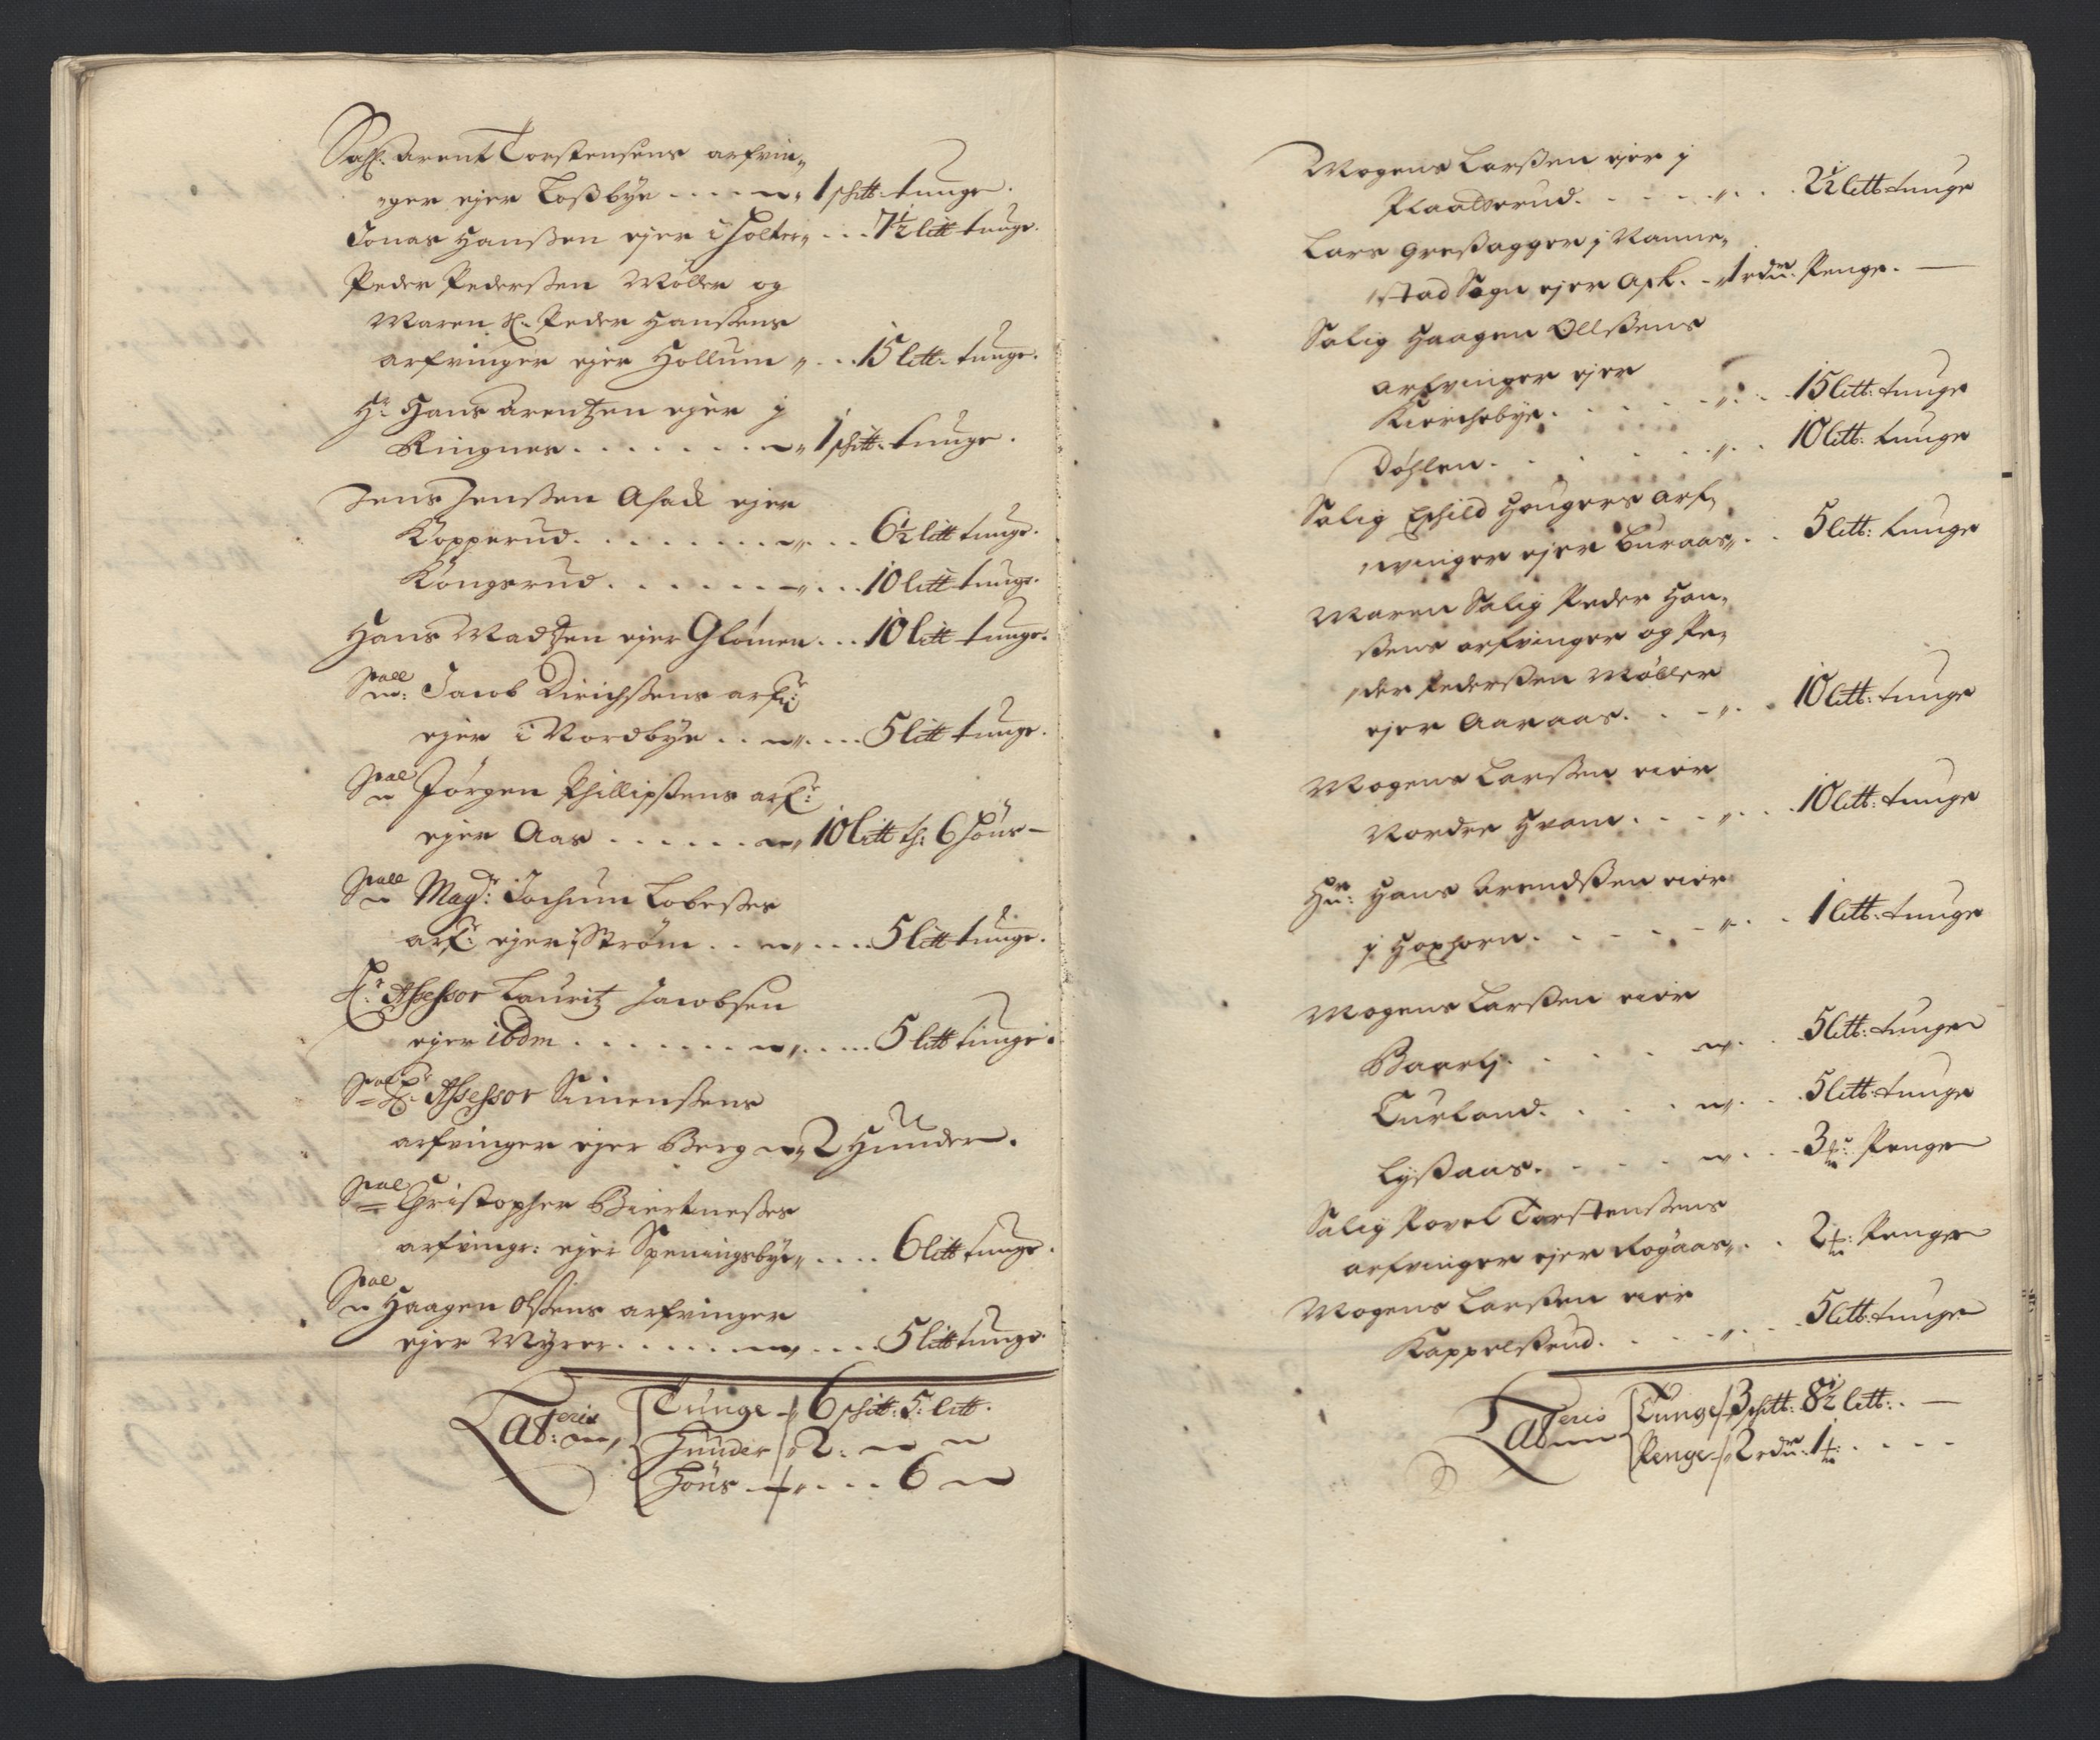 Sahl. Arent Torstensens arfvin„
„ger ejer Loßbÿe - - - - „ 1 schitt: tunge.
Jonas Hanßen ejer i Holter„ . . . 7½ litt tunge.
Peder Pederßen Møller og
Maren Sl. Peder Hanßens
arfvinger ejer Hollum „ . . . 15 litt: tunge.
Hr. Hans Arentzen ejer j
Ringnes . . . . . . . „ 1 schitt: tunge.
Jens Jenßen Asack ejer
Kopperud . . . . . . . „ . . . 6½ litt tunge.
Kongsrud . . . . . . . „ . . . 10 litt tunge.
Hans Madtzen ejer Glomen . . . 10 litt tunge.
Sall Jacob Dirichßens arf:
ejer i Nordbÿe . . „ . . . . 5 litt tunge.
Sal Jørgen Phillipßens arf:
ejer Aas . . . . . . „ 10 litt th: 6 Høns –
Sall Magr: Jochum Lobeßes
arf: ejer i Strøm . . „ . . . . 5 litt tunge.
Hr: Assessor Lauritz Jacobsen
ejer ibdm . . . . . . . „ . . . . . 5 litt tunge.
Sal Hr: Assessor Simenßens
arfvinger ejer Berg „ 2 Hunder.
Sal Christopher Biertneßes
arfvingr: ejer Speningsbÿe„ . . . . 6 litt tunge.
Sal Haagen Olßens arfvinger
ejer Mÿrer . . . . . . „ . . . . 5 litt tunge.
Lateris
Tunge - „ 6 schitt: 5: litt.
Hunder „ 2: „ „
Høns - „ . . . 6 „
Mogens Larßen ejer j
Plaadsrud . . . . . „ . . . 2½ litt: tunge
Lars Greßagger j Ranne„
„stad Sogn ejer Ask. - „ 1 rdr. Penge. —
Salig Haagen Ollßens
arfvinger ejer
Kierchebÿe . . . . . „ . . 15 litt: tunge
Døhlen . . . . . . „ . . 10 litt: tunge
Salig Eschild Haugers arf„
„winger ejer Buraas„ . . 5 litt: tunge
Maren Salig Peder Han„
ßens arfvinger og Pe„
„der Pederßen Møller
ejer Aaraas . . . „ . . 10 litt: tunge
Mogens Larßen eier
Nordre Hvam . . . „ . . . 10 litt: tunge
Hr: Hans Arendßen eier
j Hoxhorn . . . . . „ . . 1 litt: tunge
Mogens Larßen eier
Baarlj . . . . . „ . . 5 litt: tunge
Turland . . . . . „ . . 5 litt: tunge
Lÿßaas . . . . . „ . . . 3 ß: Penge
Salig Povel Torstenßens
arfvinger ejer Rogaas„ . . 2 ß: Penge
Mogens Larßen eier
Kappelßrud . . . . . „ . . . 5 litt: tunge
Lateris
Tunge 3 schitt: 8½ litt: . —
Penge - „ 2 rdr. 1 ß: . . . .